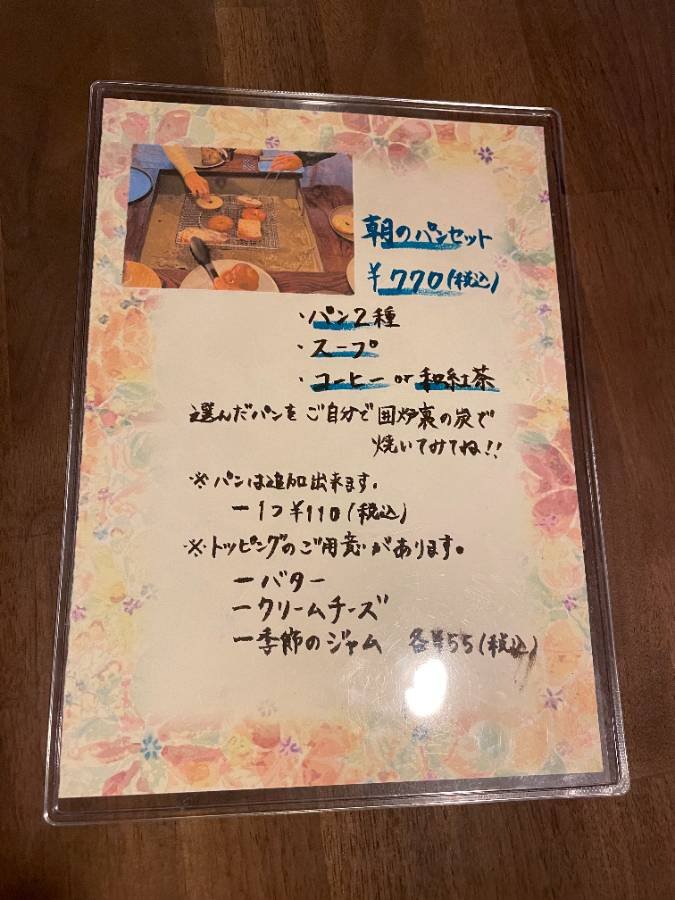 朝のパンセット
¥770(税込)
・パン2種
・スープ
・コーヒー or 和紅茶
選んだパンを ご自分で囲炉裏の炭で
焼いてみてね!!
※パンは追加出来ます。
ー1つ¥110(税込)
※トッピングのご用意があります。
ーバター
ークリームチーズ
ー季節のジャム 各¥55(税込)